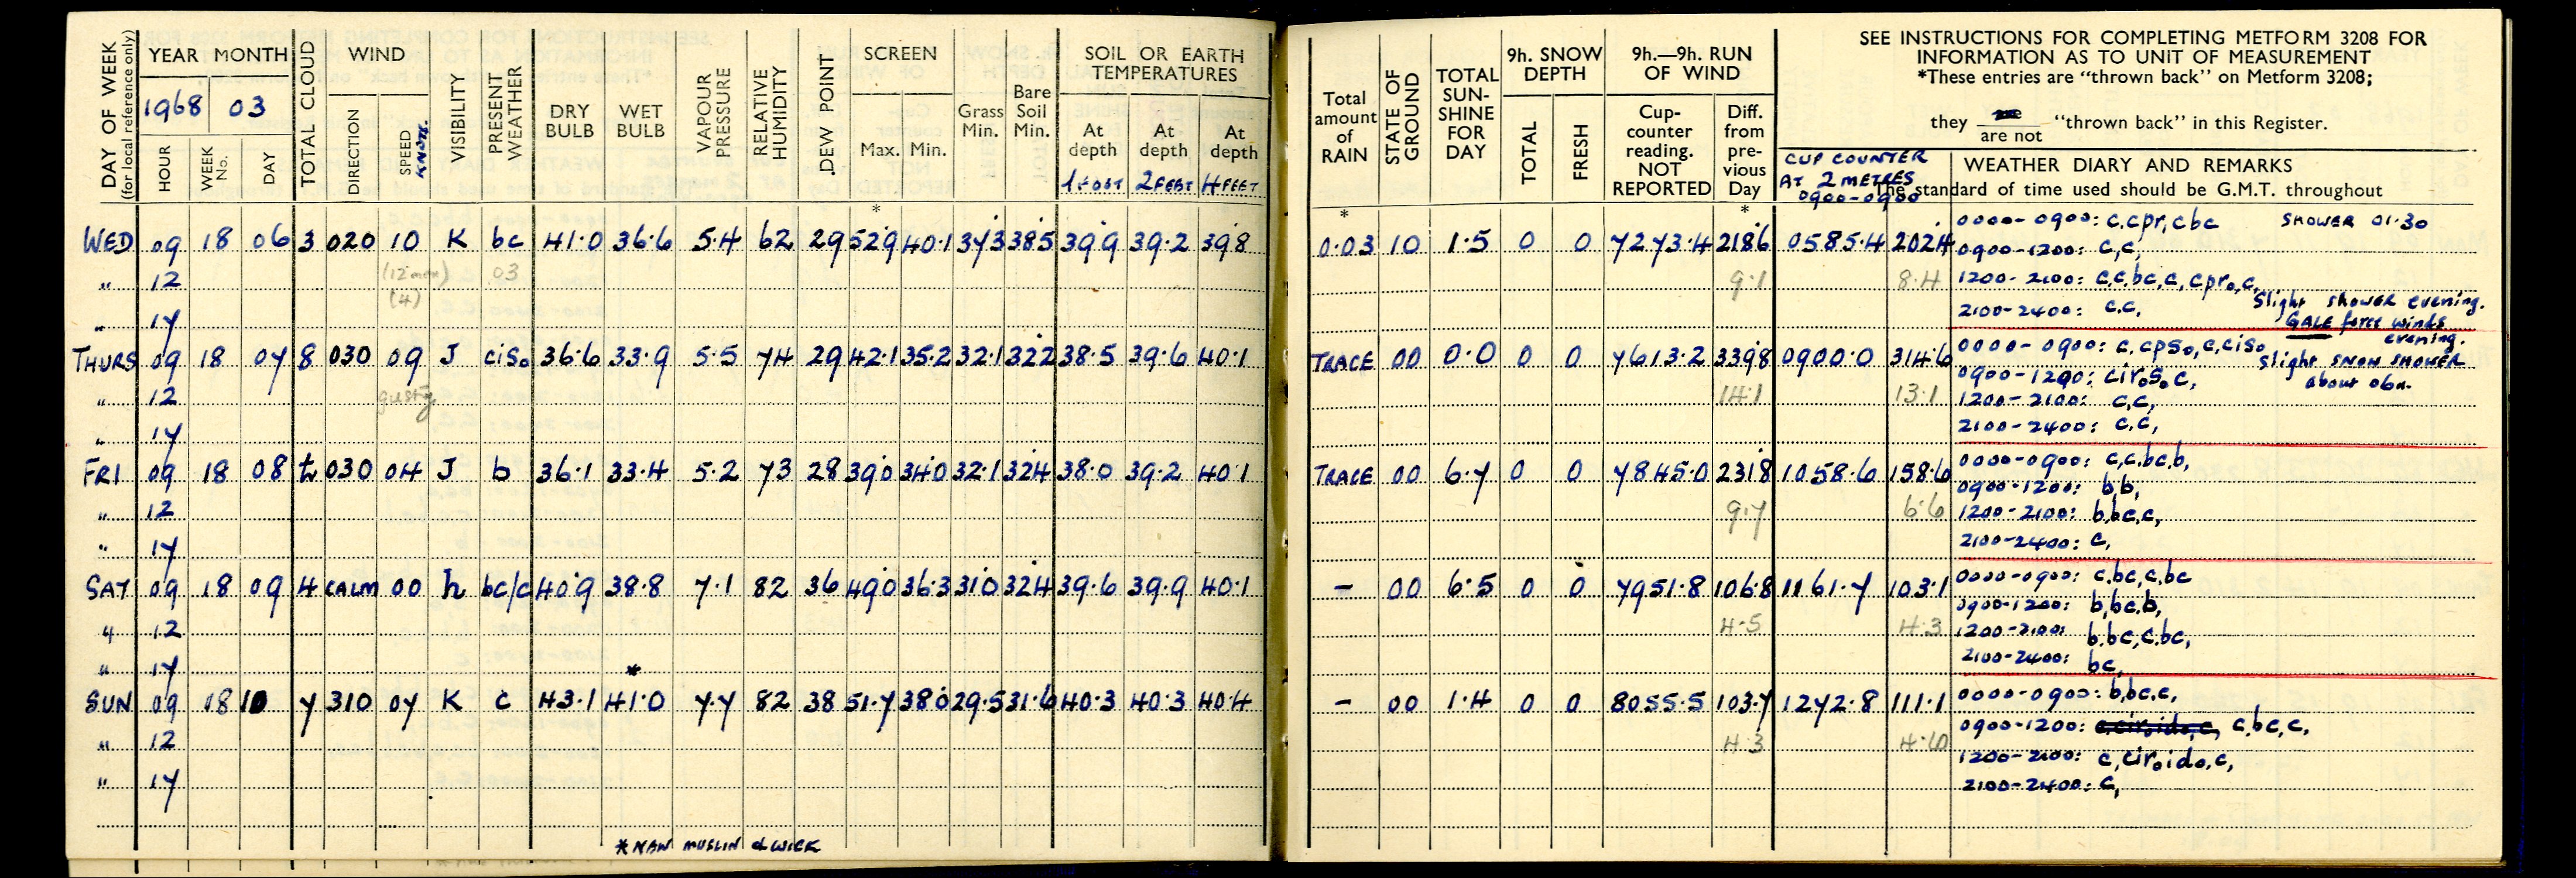 DAY OF WEEK (for local reference only)
YEAR MONTH
1968 03
HOUR WEEK No. DAY
TOTAL CLOUD
WIND
DIRECTION SPEED KNOTS.
VISIBILITY
PRESENT WEATHER
DRY BULB
WET BULB
VAPOUR PRESSURE
RELATIVE HUMIDITY
DEW POINT
SCREEN
Max. Min.
Grass Min.
Bare Soil Min.
SOIL OR EARTH TEMPERATURES
At depth At depth At depth
1 FOOT 2 FEET 4 FEET
*
WED 09 18 06 3 020 10 K bc 41.0 36.6 5.4 62 29 52.9 40.1 37.3 38.5 39.9 39.2 39.8
" 12 03
(4)
" 17
THURS 09 18 07 8 030 09 J ciso 36.6 33.9 5.5 74 29 42.1 35.2 32.1 32.2 38.5 39.6 40.1
" 12 gusty
" 17
FRI 09 18 08 030 04 J b 36.1 33.4 5.2 73 28 39.0 34.0 32.1 32.4 38.0 39.2 40.1
" 12
" 17
SAT 09 18 09 4 CALM 00 h bc/c 40.9 38.8 7.1 82 36 49.0 36.3 31.0 32.4 39.6 39.9 40.1
" 12
" 17 *
SUN 09 18 10 7 310 07 K c 43.1 41.0 7.7 82 38 51.7 38.0 29.5 31.6 40.3 40.3 40.4
" 12
" 17
*NEW MUSLIN & WICK
Total amount of RAIN
STATE OF GROUND
TOTAL SUN-SHINE FOR DAY
9h. SNOW DEPTH
TOTAL FRESH
9h.—9h. RUN OF WIND
Cup-counter reading. NOT REPORTED
Diff. from pre-vious Day
SEE INSTRUCTIONS FOR COMPLETING METFORM 3208 FOR
INFORMATION AS TO UNIT OF MEASUREMENT
*These entries are "thrown back" on Metform 3208;
they are not "thrown back" in this Register.
CUP COUNTER
AT 2 METRES
0900-0900
WEATHER DIARY AND REMARKS
The standard of time used should be G.M.T. throughout
* *
0.03 10 1.5 0 0 7273.4 218.6 0585.4 202.4
9.1 8.4
0000-0900: c,cpr,cbc SHOWER 01.30
0900-1200: c,c,
1200-2100: c,c,bc,c,cpro,c,
Slight SHOWER evening.
2100-2400: c,c,
GALE force winds evening.
TRACE 00 0.0 0 0 7613.2 339.8 0900.0 314.6
14.1 13.1
0000-0900: c,cpso,c,ciso
Slight SNOW SHOWER
0900-1200: ciroso,c,
about 06h.
1200-2100: c,c,
2100-2400: c,c,
TRACE 00 6.7 0 0 7845.0 231.8 1058.6 158.6
9.7 6.6
0000-0900: c,c,bc,b,
0900-1200: b,b,
1200-2100: b,bc,c,
2100-2400: c,
– 00 6.5 0 0 7951.8 106.8 1161.7 103.1
4.5 4.3
0000-0900: c,bc,c,bc
0900-1200: b,bc,b,
1200-2100: b,bc,c,bc,
2100-2400: bc,
– 00 1.4 0 0 8055.5 103.7 1272.8 111.1
4.3 4.6
0000-0900: b,bc,c,
0900-1200: c,bc,c,
1200-2100: c,ciro,ido,c,
2100-2400: c,